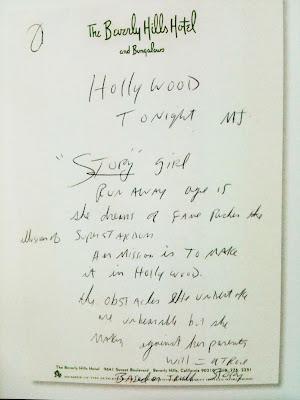 The Beverly Hills Hotel
and Bungalows
Hollywood
Tonight MJ
"Story" girl
Run away age 15
she dreams of Fame the
illusion of SuperStardom
Her Mission is To Make
it in Hollywood.
the obstacles she
are unbearable but she
against her parents
will =
Based on Truth Story
The Beverly Hills Hotel 9641 Sunset Boulevard Beverly Hills, California 90210